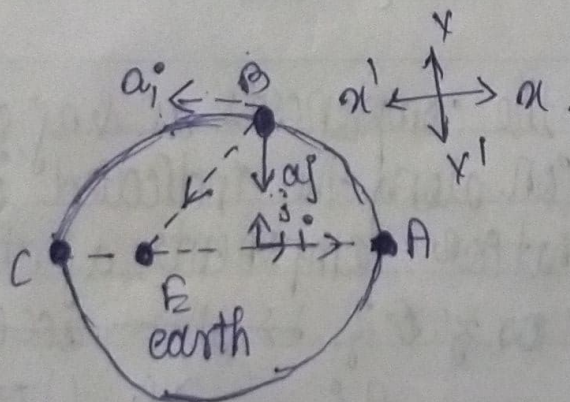 Y
a i B
x' x
Y'
a j
j i A
C
E
earth